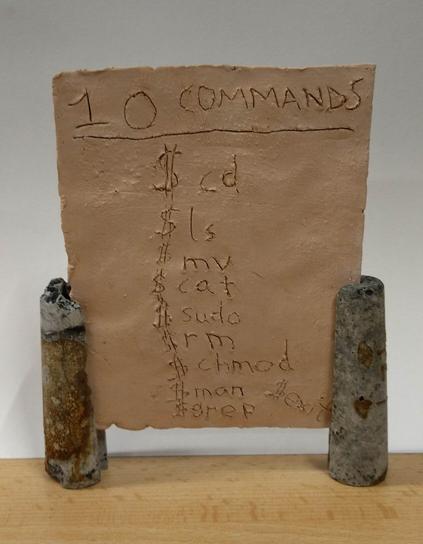 10 COMMANDS
$ cd
$ ls
$ mv
$ cat
$ sudo
$ rm
$ chmod
$ man
$ grep